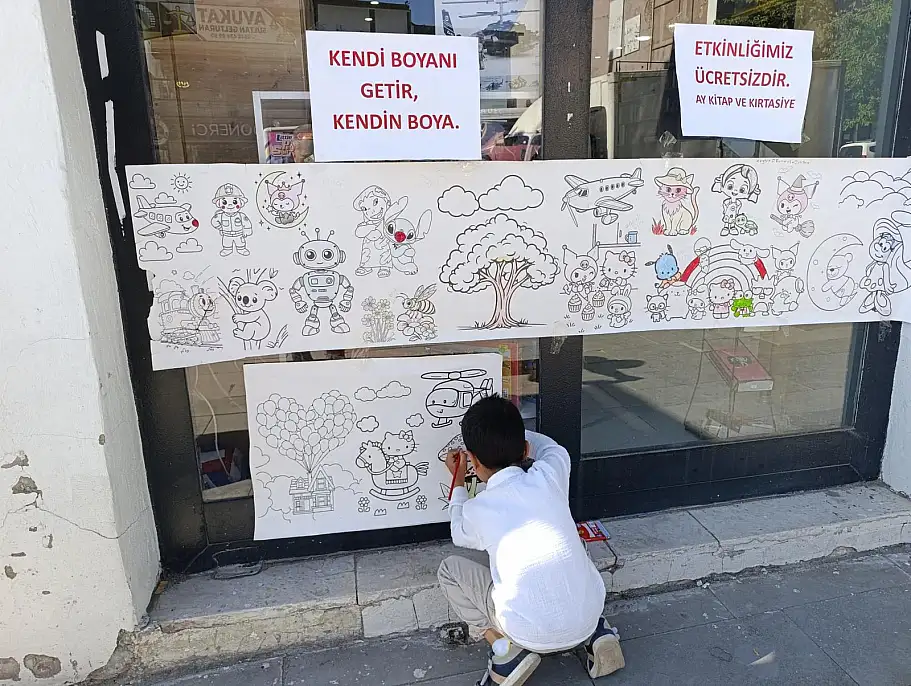 AVUKAT
KENDİ BOYANI
GETİR,
KENDİN BOYA.
ETKİNLİĞİMİZ
ÜCRETSİZDİR.
AY KİTAP VE KIRTASİYE